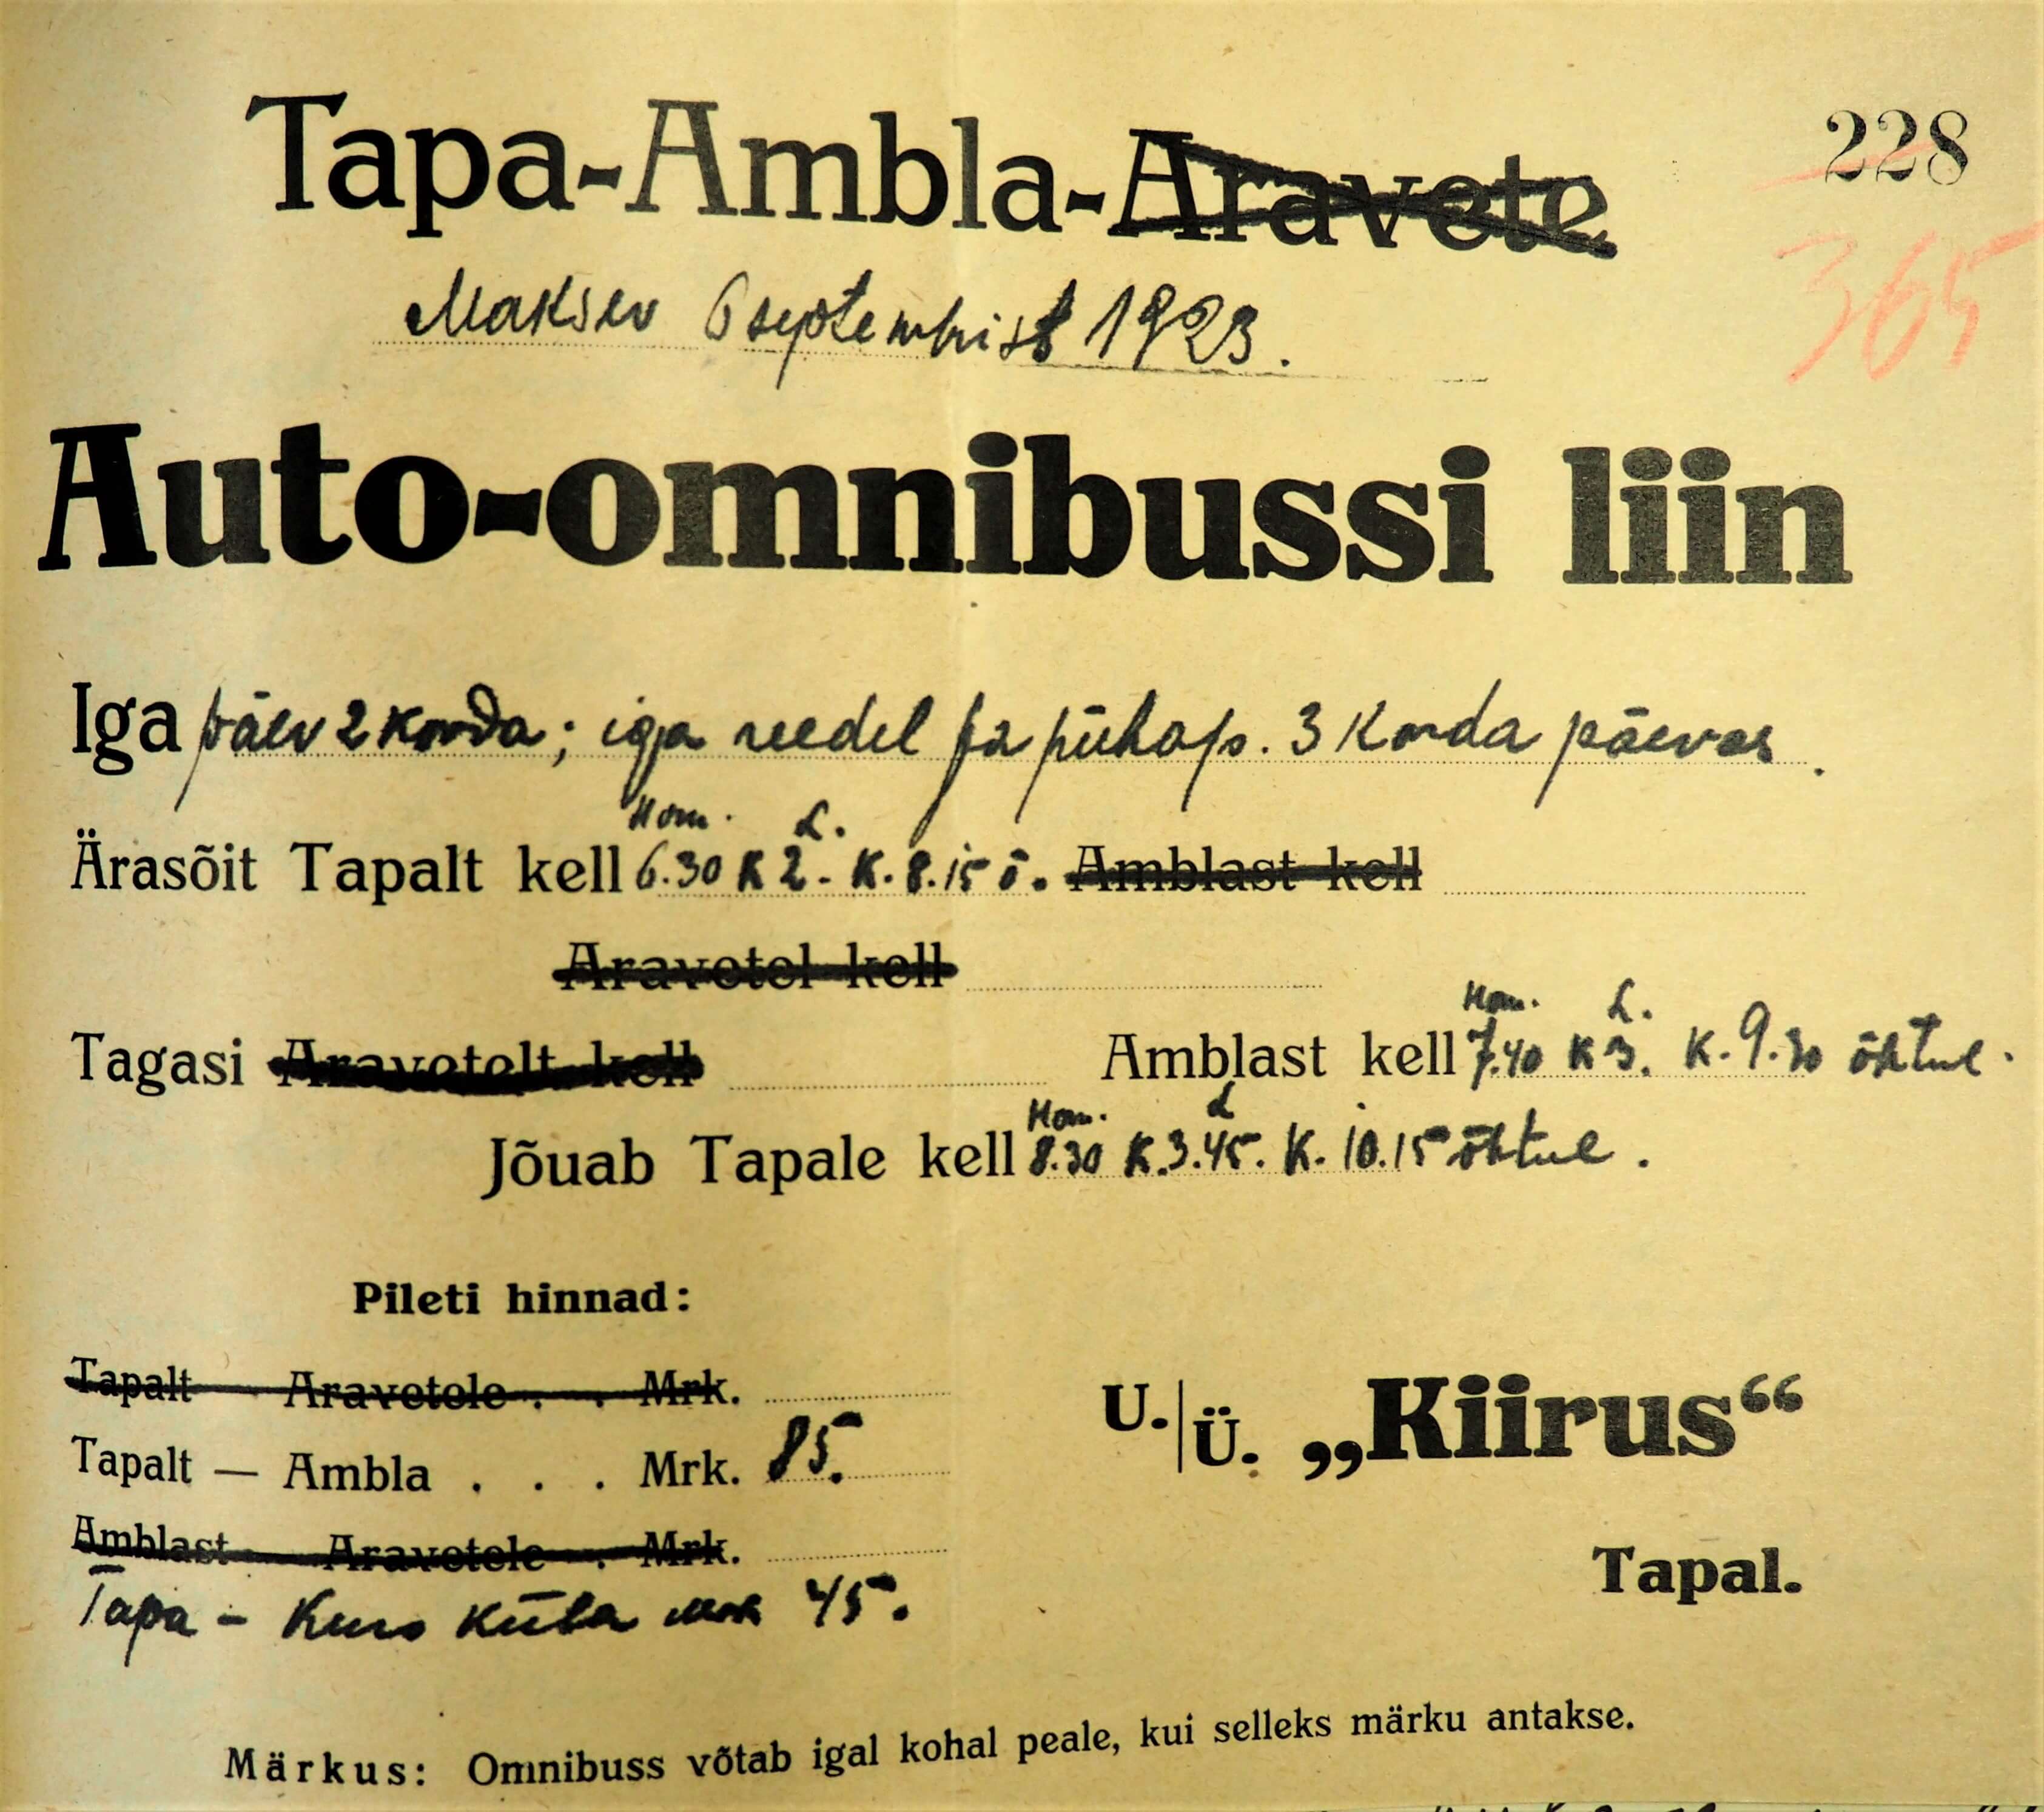 Tapa-Ambla-Aravete
228
365
Maksev 6 septembrist 1923.
Auto-omnibussi liin
Iga päev 2 korda; iga reedel ja pühap. 3 korda päevas.
Hom. L.
Ärasõit Tapalt kell 6.30 K 2. K. 8.15 õ. Amblast kell
Aravetel kell
Hom. L.
Tagasi Aravetelt kell Amblast kell 7.40 K 3. K. 9.30 õhtul.
Hom. L
Jõuab Tapale kell 8.30 K. 3.45. K. 10.15 õhtul.
Pileti hinnad:
Tapalt — Aravetele . . Mrk.
Tapalt — Ambla . . . Mrk. 85.
Amblast — Aravetele . Mrk.
Tapa - Kuro küla mrk 45.
U./Ü. „Kiirus“
Tapal.
Märkus: Omnibuss võtab igal kohal peale, kui selleks märku antakse.